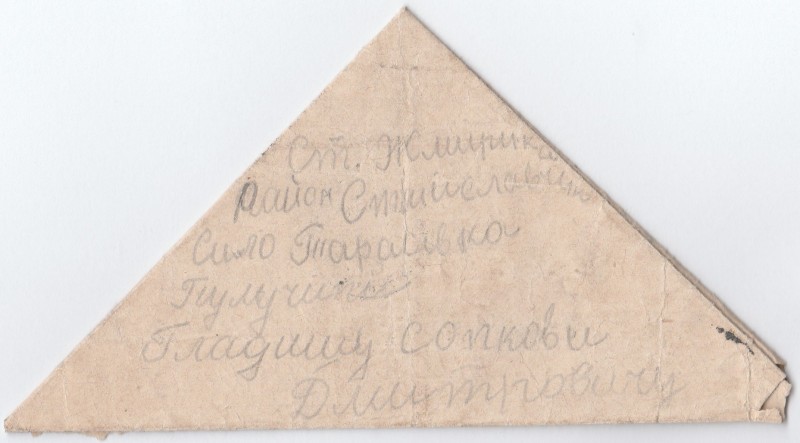 Ст. Жмиринка
район Станіславчик
Сило Тарасівка
Пулучить
Гладишу сопкови
Дмитровичу